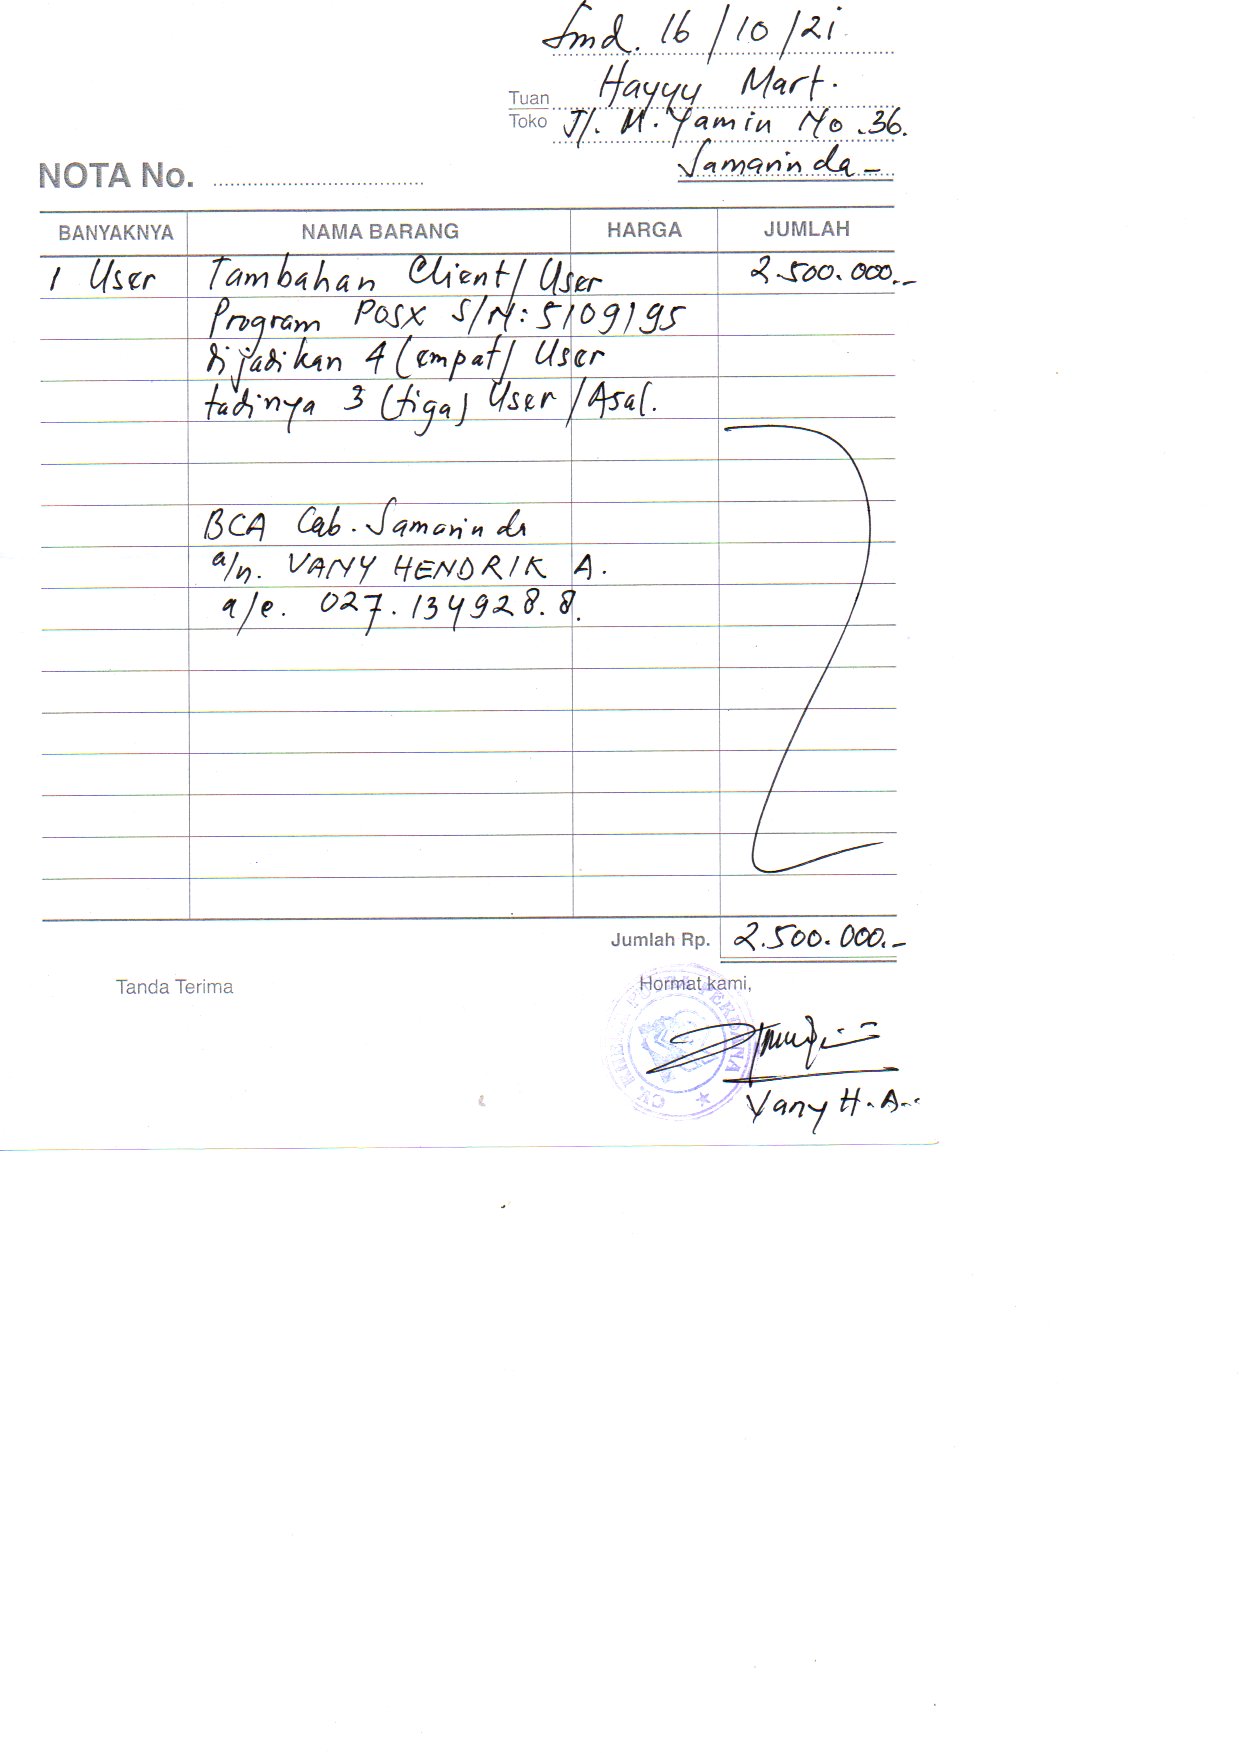 Smd. 16/10/21
Tuan Hayyu Mart.
Toko Jl. M. Yamin No. 36.
Samarinda -
NOTA No.
BANYAKNYA NAMA BARANG HARGA JUMLAH
1 User Tambahan Client/User 2.500.000.-
Program POSX S/N: 5109195
dijadikan 4 (empat) User
tadinya 3 (tiga) User/Asal.
BCA Cab. Samarinda
a/n. VANY HENDRIK A.
a/c. 027.134928.8.
Jumlah Rp. 2.500.000.-
Tanda Terima Hormat kami,
CV. PERDANA
Vany H. A.